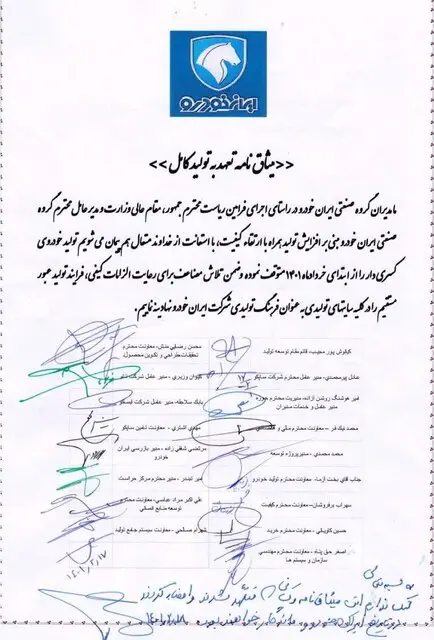 ایران خودرو
<<میثاق نامه تعهد به تولید کامل>>
ما مدیران گروه صنعتی ایران خودرو در راستای اجرای فرامین ریاست محترم جمهور، مقام عالی وزارت و مدیر عامل محترم گروه
صنعتی ایران خودرو مبنی بر افزایش تولید همراه با ارتقاء کیفیت، با استعانت از خداوند متعال هم پیمان می شویم تولید خودروی
کسری دار را از ابتدای خرداد ماه ۱۴۰۱ متوقف نموده و ضمن تلاش مضاعف برای رعایت الزامات کیفی، فرایند تولید عبور
مستقیم را در کلیه سایتهای تولیدی به عنوان فرهنگ تولیدی شرکت ایران خودرو نهادینه نماییم.
کیانوش پور مجیب، قائم مقام توسعه تولید
محسن رضایی منش، معاونت محترم
تحقیقات، طراحی و تکوین محصول
عادل پیرمحمدی، مدیر عامل محترم شرکت ساپکو
کیوان وزیری، مدیر عامل شرکت
امیر هوشنگ روشن آزاده، مدیریت محترم حوزه
مدیر عامل و خدمات مدیران
بابک سلاجقه، مدیر عامل شرکت ایسکو
محمد نیک فر - معاونت محترم مالی و
مهدی اشتری - معاونت تامین ساپکو
محمد محمدی - مدیر پروژه توسعه
مرتضی شفی زاده - مدیر بازرسی ایران
خودرو
جناب آقای بخت آزما، معاونت محترم تولید خودرو
امیر مدیر محترم مرکز حراست
سهراب برفروشان - معاونت محترم کیفیت
علی اکبر مراد عباسی - معاونت محترم
توسعه منابع انسانی
حسین کاویانی - معاونت محترم خرید
شهرام صالحی - معاونت سیستم جامع تولید
اصغر حق پناه - معاونت محترم مهندسی
سازمان و سیستم ها
۱۴۰۱/۲/۱۷